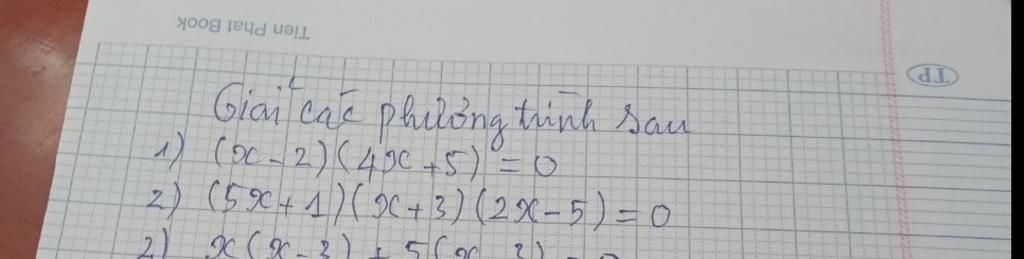 Tien Phat Book
TP
Giải các phương trình sau
1) (x - 2)(4x + 5) = 0
2) (5x + 1)(x + 3)(2x - 5) = 0